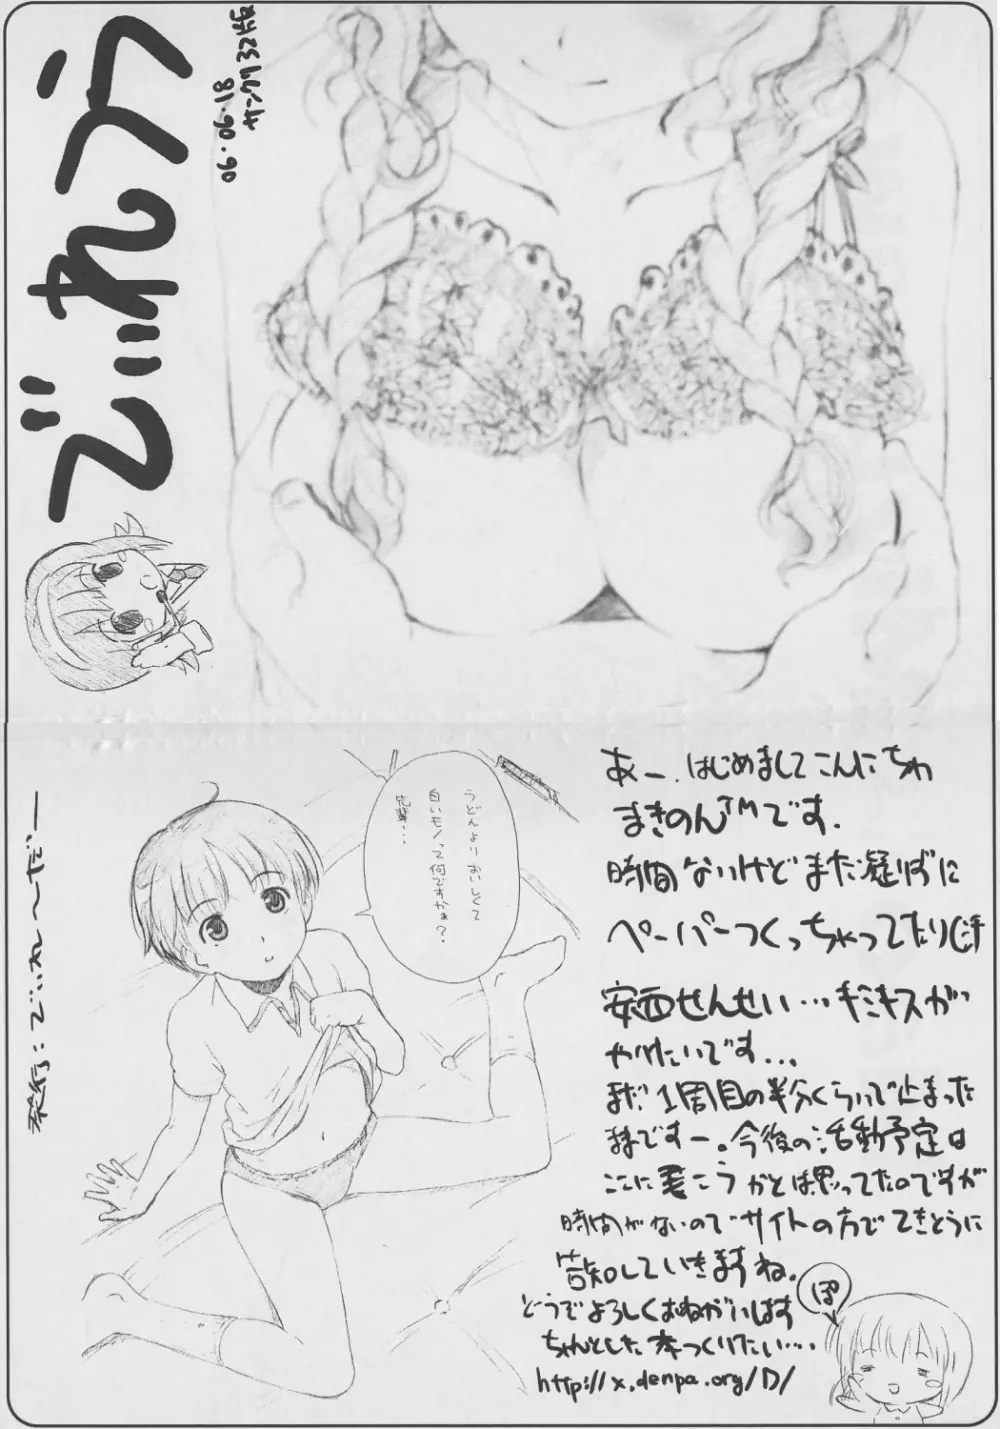 でぃれう
06.06.18
サンクリ32版
あー、はじめましてこんにちわ
まきのん™です.
時間ないけどまた凝りずに
ペーパーつくっちゃってたり(汗
安西せんせい…キミキスが
やりたいです…
まだ1周目の半分くらいで止まった
ままですー。今後の活動予定は
ここに書こうかとは思ってたのですが
時間がないのでサイトの方でてきとうに
告知していきますね.
どうぞよろしくおねがいします
ちゃんとした本つくりたい….
http://x.denpa.org/D/
ぽ
うどんよりおいしくて
白いモノって何ですかぁ?
先輩…
発行:でぃれ〜だー